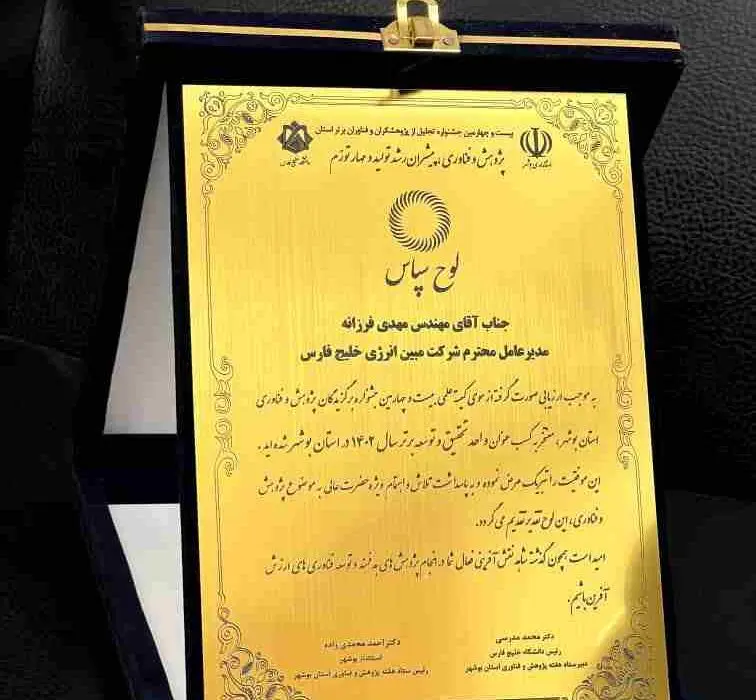 بیست و چهارمین جشنواره تجلیل از پژوهشگران و فناوران برتر استان
پژوهش و فناوری، پیشران رشد تولید و مهار تورم
لوح سپاس
جناب آقای مهندس مهدی فرزانه
مدیرعامل محترم شرکت مبین انرژی خلیج فارس
به موجب ارزیابی صورت گرفته از سوی کمیته علمی بیست و چهارمین جشنواره برگزیدگان پژوهش و فناوری
استان بوشهر، مفتخر به کسب عنوان واحد تحقیق و توسعه برتر سال ۱۴۰۲ در استان بوشهر شده اید.
این موفقیت را تبریک عرض نموده و به پاسداشت تلاش و اهتمام ویژه حضرت عالی به موضوع پژوهش
و فناوری، این لوح تقدیر تقدیم می گردد.
امید است همچون گذشته شاهد نقش آفرینی فعال شما در انجام پژوهش های هدفمند و توسعه فناوری های ارزش
آفرین باشیم.
دکتر محمد مدرسی
رئیس دانشگاه خلیج فارس
دبیر ستاد هفته پژوهش و فناوری استان بوشهر
دکتر احمد محمدی زاده
استاندار بوشهر
رئیس ستاد هفته پژوهش و فناوری استان بوشهر